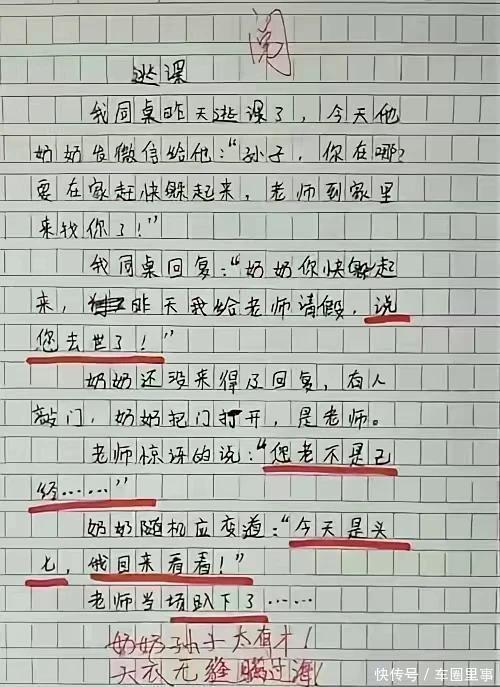 阅
逃课
我同桌昨天逃课了，今天他
奶奶发微信给他："孙子，你在哪?
要在家赶快躲起来，老师到家里
来找你了!"
我同桌回复："奶奶你快躲起
来，昨天我给老师请假，说
您去世了!"
奶奶还没来得及回复，有人
敲门，奶奶把门打开，是老师。
老师惊讶的说："您老不是已
经……"
奶奶随机应变道："今天是头
七，我回来看看!"
老师当场趴下了……
奶奶孙子太有才!
天衣无缝瞒过海!
快传号/车圈里事